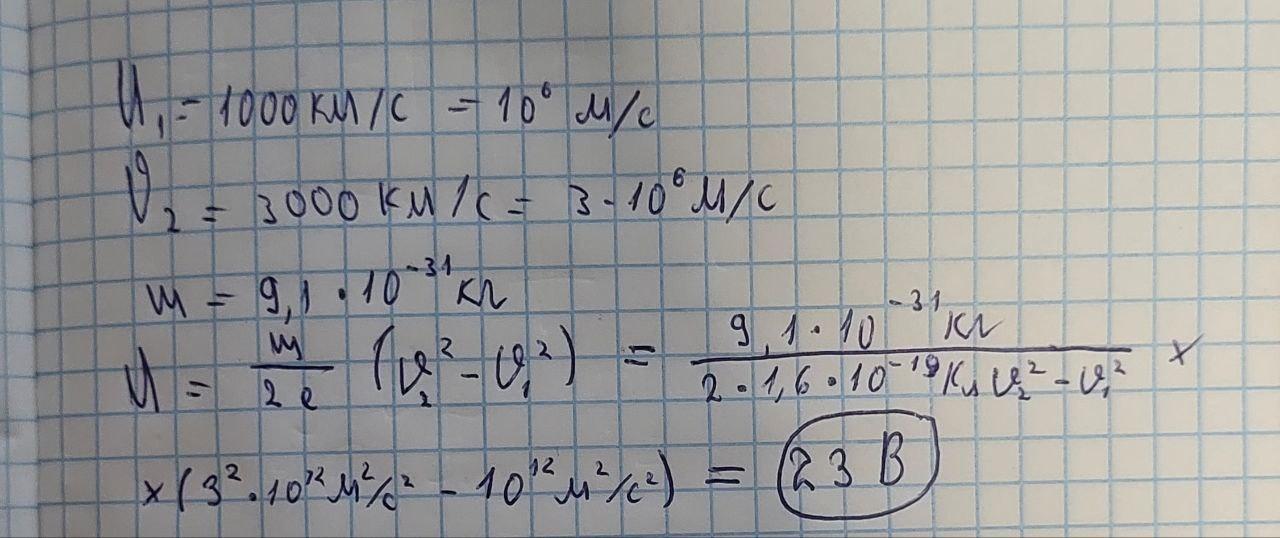 U₁ = 1000 км/с = 10⁶ м/с
υ₂ = 3000 км/с = 3 · 10⁶ м/с
m = 9,1 · 10⁻³¹ кг
U = m / 2e (υ₂² - υ₁²) = 9,1 · 10⁻³¹ кг / 2 · 1,6 · 10⁻¹⁹ Кл υ₂² - υ₁² ×
× (3² · 10¹² м²/с² - 10¹² м²/с²) = 23 В